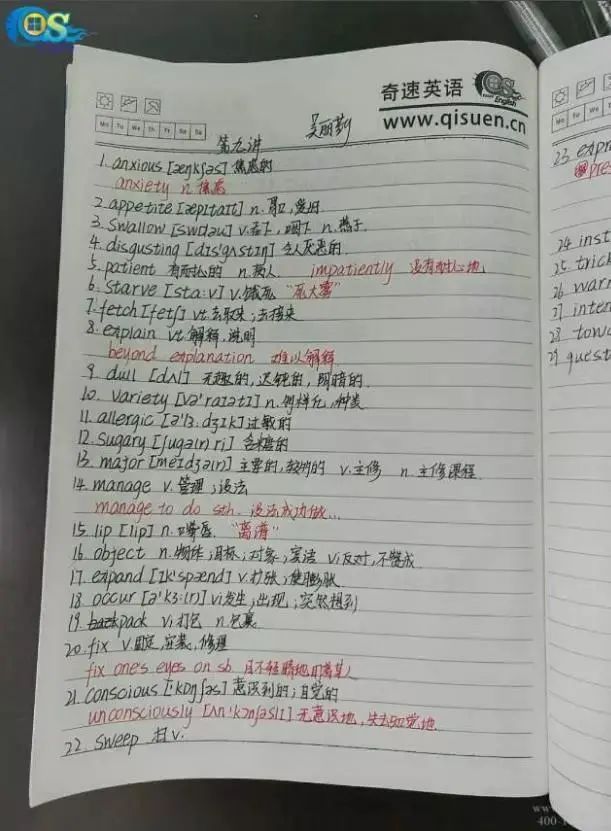 QS
奇速英语
QS
English
www.qisuen.cn
Mo Tu We Th Fr Sa Su
第九讲
吴丽勤
1. anxious [æŋkʃəs] 焦虑的
anxiety n. 焦虑
2. appetite [æpɪtaɪt] n. 胃口,爱好
3. swallow [swɒləu] v.吞下,咽下 n. 燕子
4. disgusting [dɪs'gʌstɪŋ] 令人厌恶的.
5. patient 有耐心的 n.病人. impatiently 没有耐心地
6. starve [sta:v] v.饿死 "死大雾"
7. fetch [fetʃ] vt.去取来;去接来
8. explain vt.解释,说明
beyond explanation 难以解释
9. dull [dʌl] 无趣的,迟钝的,阴暗的.
10. variety [və'raɪətɪ] n.多样化,种类
11. allergic [ə'lɜ.dʒɪk] 过敏的
12. sugary [ʃugə(r) ri] 含糖的
13. major [meɪdʒə(r)] 主要的,较多的 v.主修 n.主修课程.
14. manage v.管理;设法
manage to do sth. 设法成功做...
15. lip [lɪp] n.嘴唇. "离谱"
16. object n.物体;目标;对象;宾语 vi反对,不赞成.
17. expand [ɪk'spænd] v.扩张;使膨胀.
18. occur [ə'kɜ:(r)] vi发生;出现;突然想到
19. pack vi打包 n.包裹
20. fix v.固定,安装,修理
fix one's eyes on sb 目不转睛地盯着某人
21. conscious ['kɒnʃəs] 意识到的;自觉的
unconsciously [ʌn'kɒnʃəslɪ] 无意识地,失去知觉地.
22. sweep 扫 v.
23. expr
pres
24. inst
25. trick
26. warn
27. inter
28. towa
29. quest
www
400-1